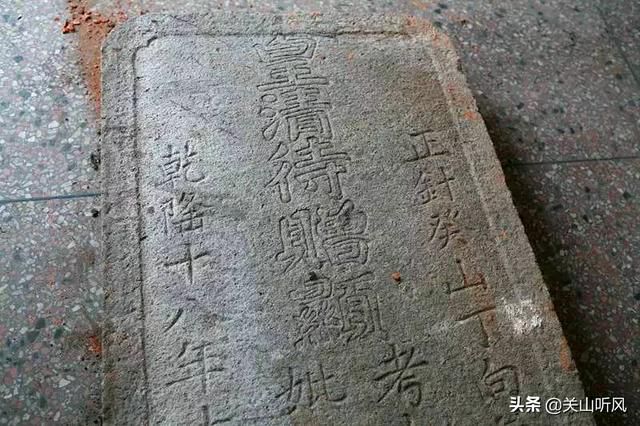 正針癸山丁向
皇清待贈顯
考
妣
乾隆十八年
头条 @关山听风